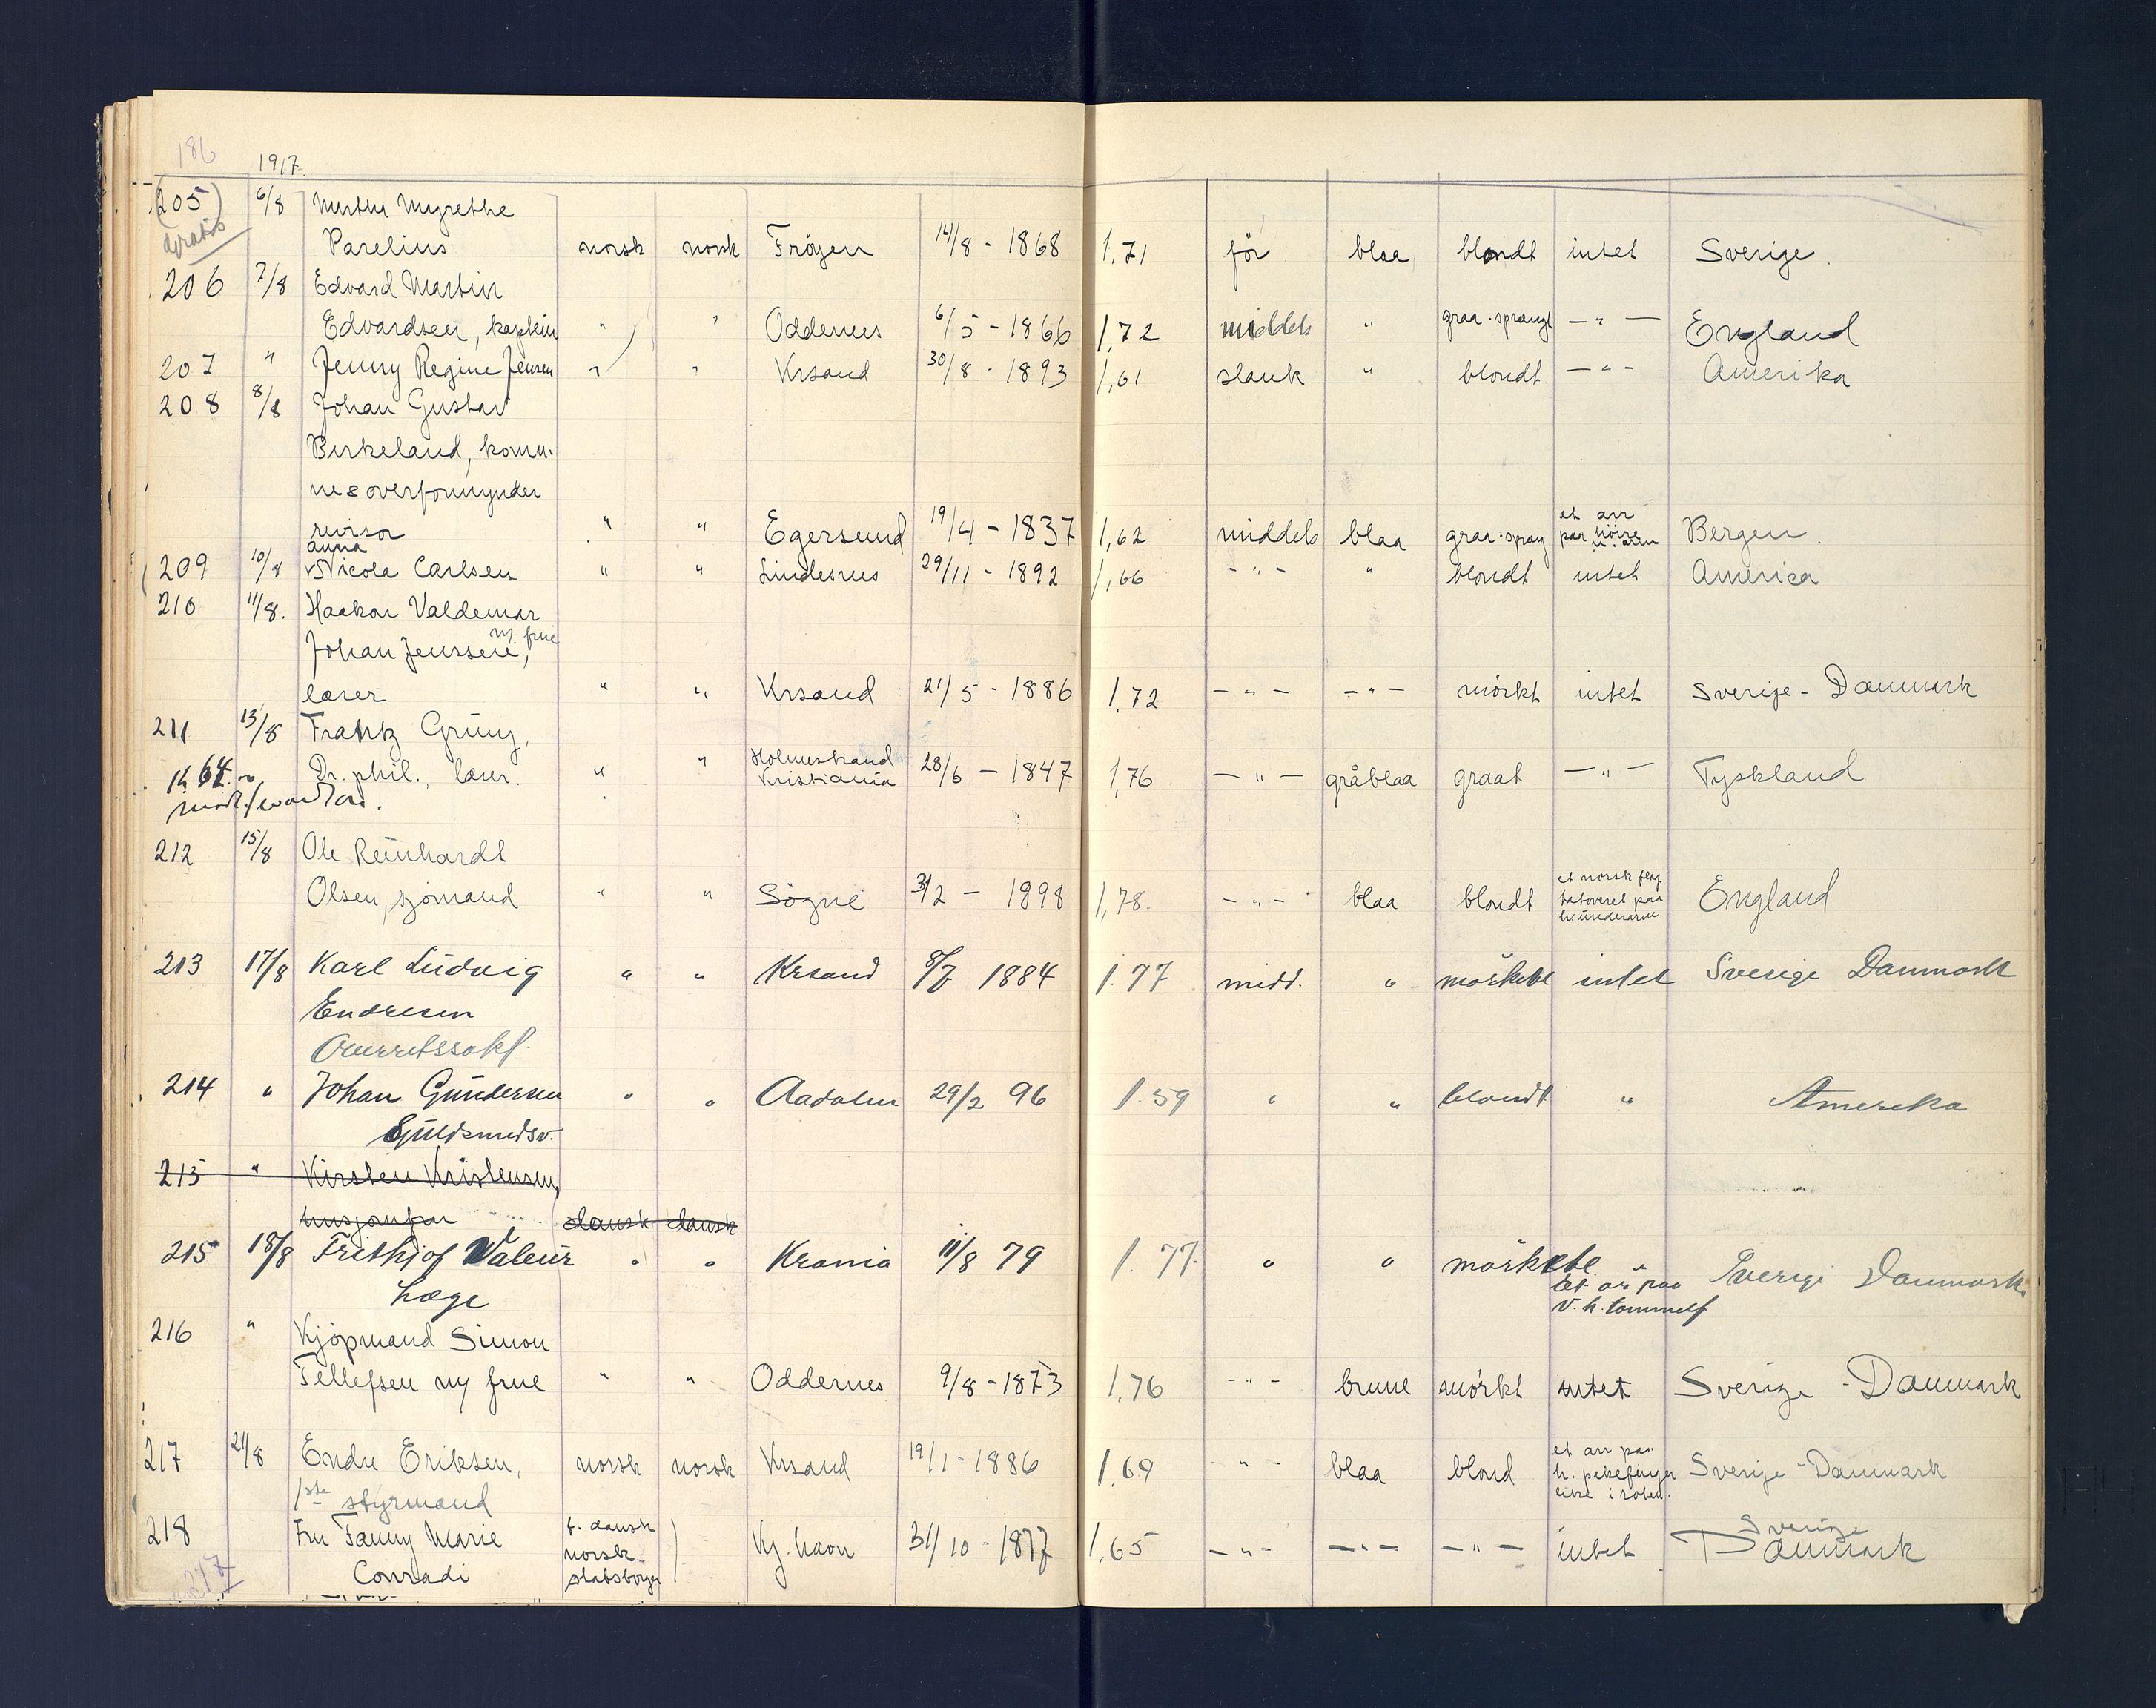 186
1917.
(205) 6/8
gratis Parelius norsk norsk Frøyen 14/8 - 1868 1,71 før blaa blondt intet Sverige.
206 7/8 Edvard Martin
Edvardsen, kaptein " " Oddernes 6/5 - 1866 1,72 middels " graa-sprengt — " — England
207 " Jenny Regine Jensen " " Krsand 30/8 - 1893 1,61 slank " blondt - " - Amerika
208 8/8 Johan Gustav
Birkeland, kommu-
nes overformynder
revisor " " Egersund 19/4 - 1837 1,62 middels blaa graa-spreng et arr paa høire u. arm Bergen.
anna
209 10/8 Nicola Carlsen " " Lindesnes 29/11 - 1892 1,66 - " - " blondt intet America
210 11/8. Haakon Valdemar
Johan Jenssen, m. frue
lærer " " Krsand 21/5 - 1886 1.72 - " - - " - mörkt intet Sverige - Danmark
211 13/8 Frantz Grüng,
Dr. phil., lær. " " Holmestrand Kristiania 28/6 - 1847 1,76 - " - gråblaa graat - " - Tyskland
212 15/8 Ole Reinhardt
Olsen, sjömand " " Sögne 3/2 - 1898 1,78. - " - blaa blondt et norsk flag tatoveret paa h. underarm England
213 17/8 Karl Ludvig " " Krsand 8/7 1884 1.77 midd. " mörkebl intet Sverige Danmark
Endresen
Overretssakf.
214 " Johan Gundersen " " Aadalen 29/2 96 1.59 " " blondt " Amerika
Guldsmedsv.
215 " Kirsten Kristensen,
husjomfru dansk dansk
215 18/8 Frithjof Valeur " " Krania 11/8 79 1.77. " " mörkebl. et ar paa v. h. tommelf Sverige Danmark
Læge
216 " Kjöpmand Simon
Tellefsen m/ frue " " Oddernes 9/8 - 1873 1,76 - " - brune mörkt intet Sverige - Danmark
217 21/8 Endre Eriksen, norsk norsk Krsand 19/1 - 1886 1,69 " - blaa blond et arr paa h. pekefinger Sverige - Danmark
1ste styrmand
218 Fru Fanny Marie f. dansk
Conradi norsk statsborger Kj.havn 31/10 - 1877 1,65 - " - - " - - " - intet Sverige Danmark
217